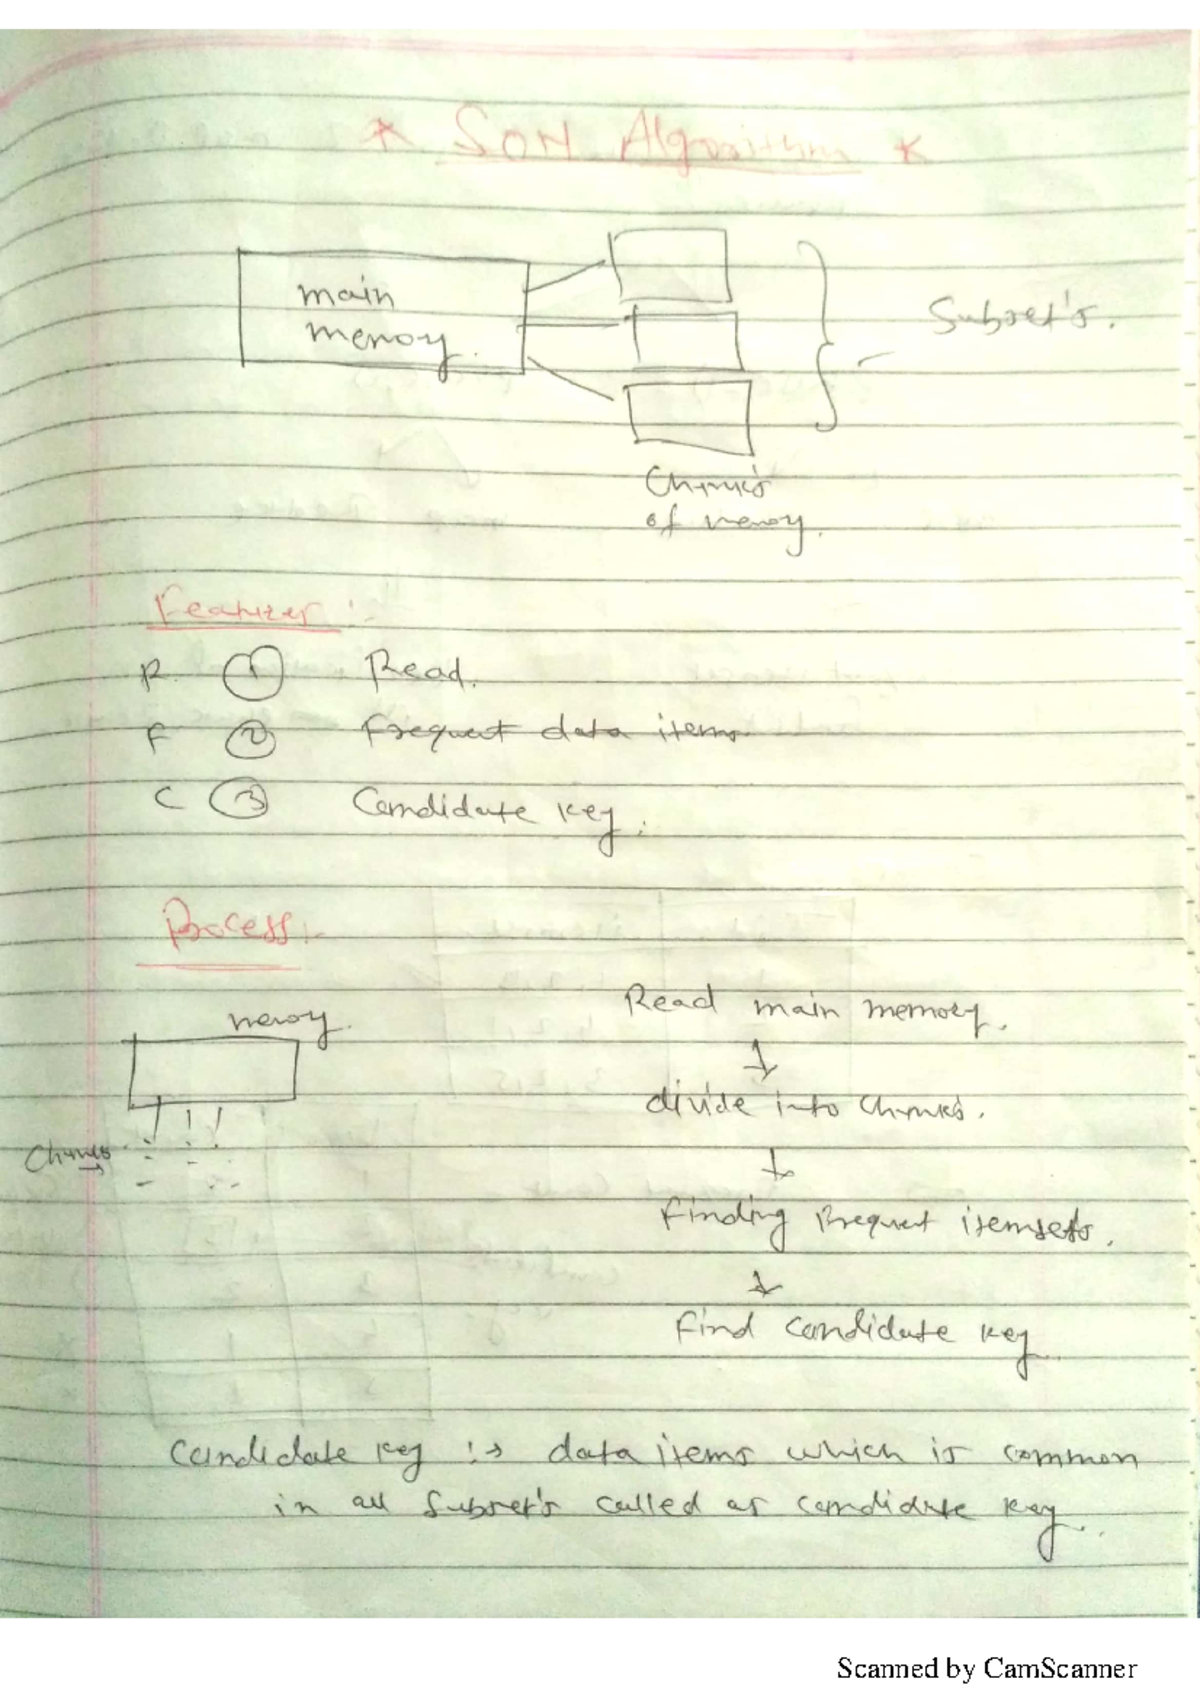 * SON Algorithm *
main
memoy.
Subset's.
Chunks
of memoy.
Features :-
R ① Read.
F ② Frequent data items
C ③ Candidate key.
Process :-
memoy.
Chunks →
Read main memory.
↓
divide into Chunks.
↓
Finding frequent itemsets.
↓
Find candidate key
Candidate key :→ data items which is common
in all Subset's called as candidate key..
Scanned by CamScanner